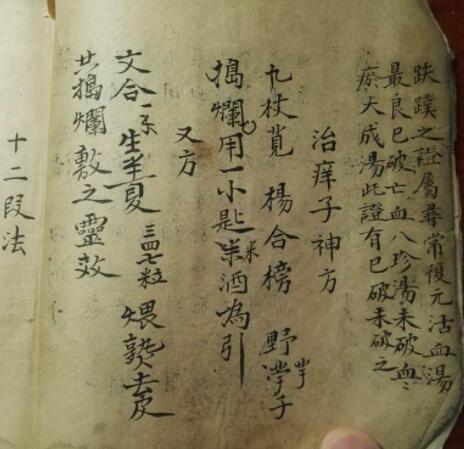 跌蹼之證屬尋常復元活血湯
最良已破亡血八珍湯未破血〻
瘀大成湯此證有已破未破之
治痒子神方
九杖莧 楊合榜 野芋子
搗爛用一小匙米酒為引
又方
文合一条 生半夏三四七粒 煨熟去皮
共搗爛敷之靈效
十二段法